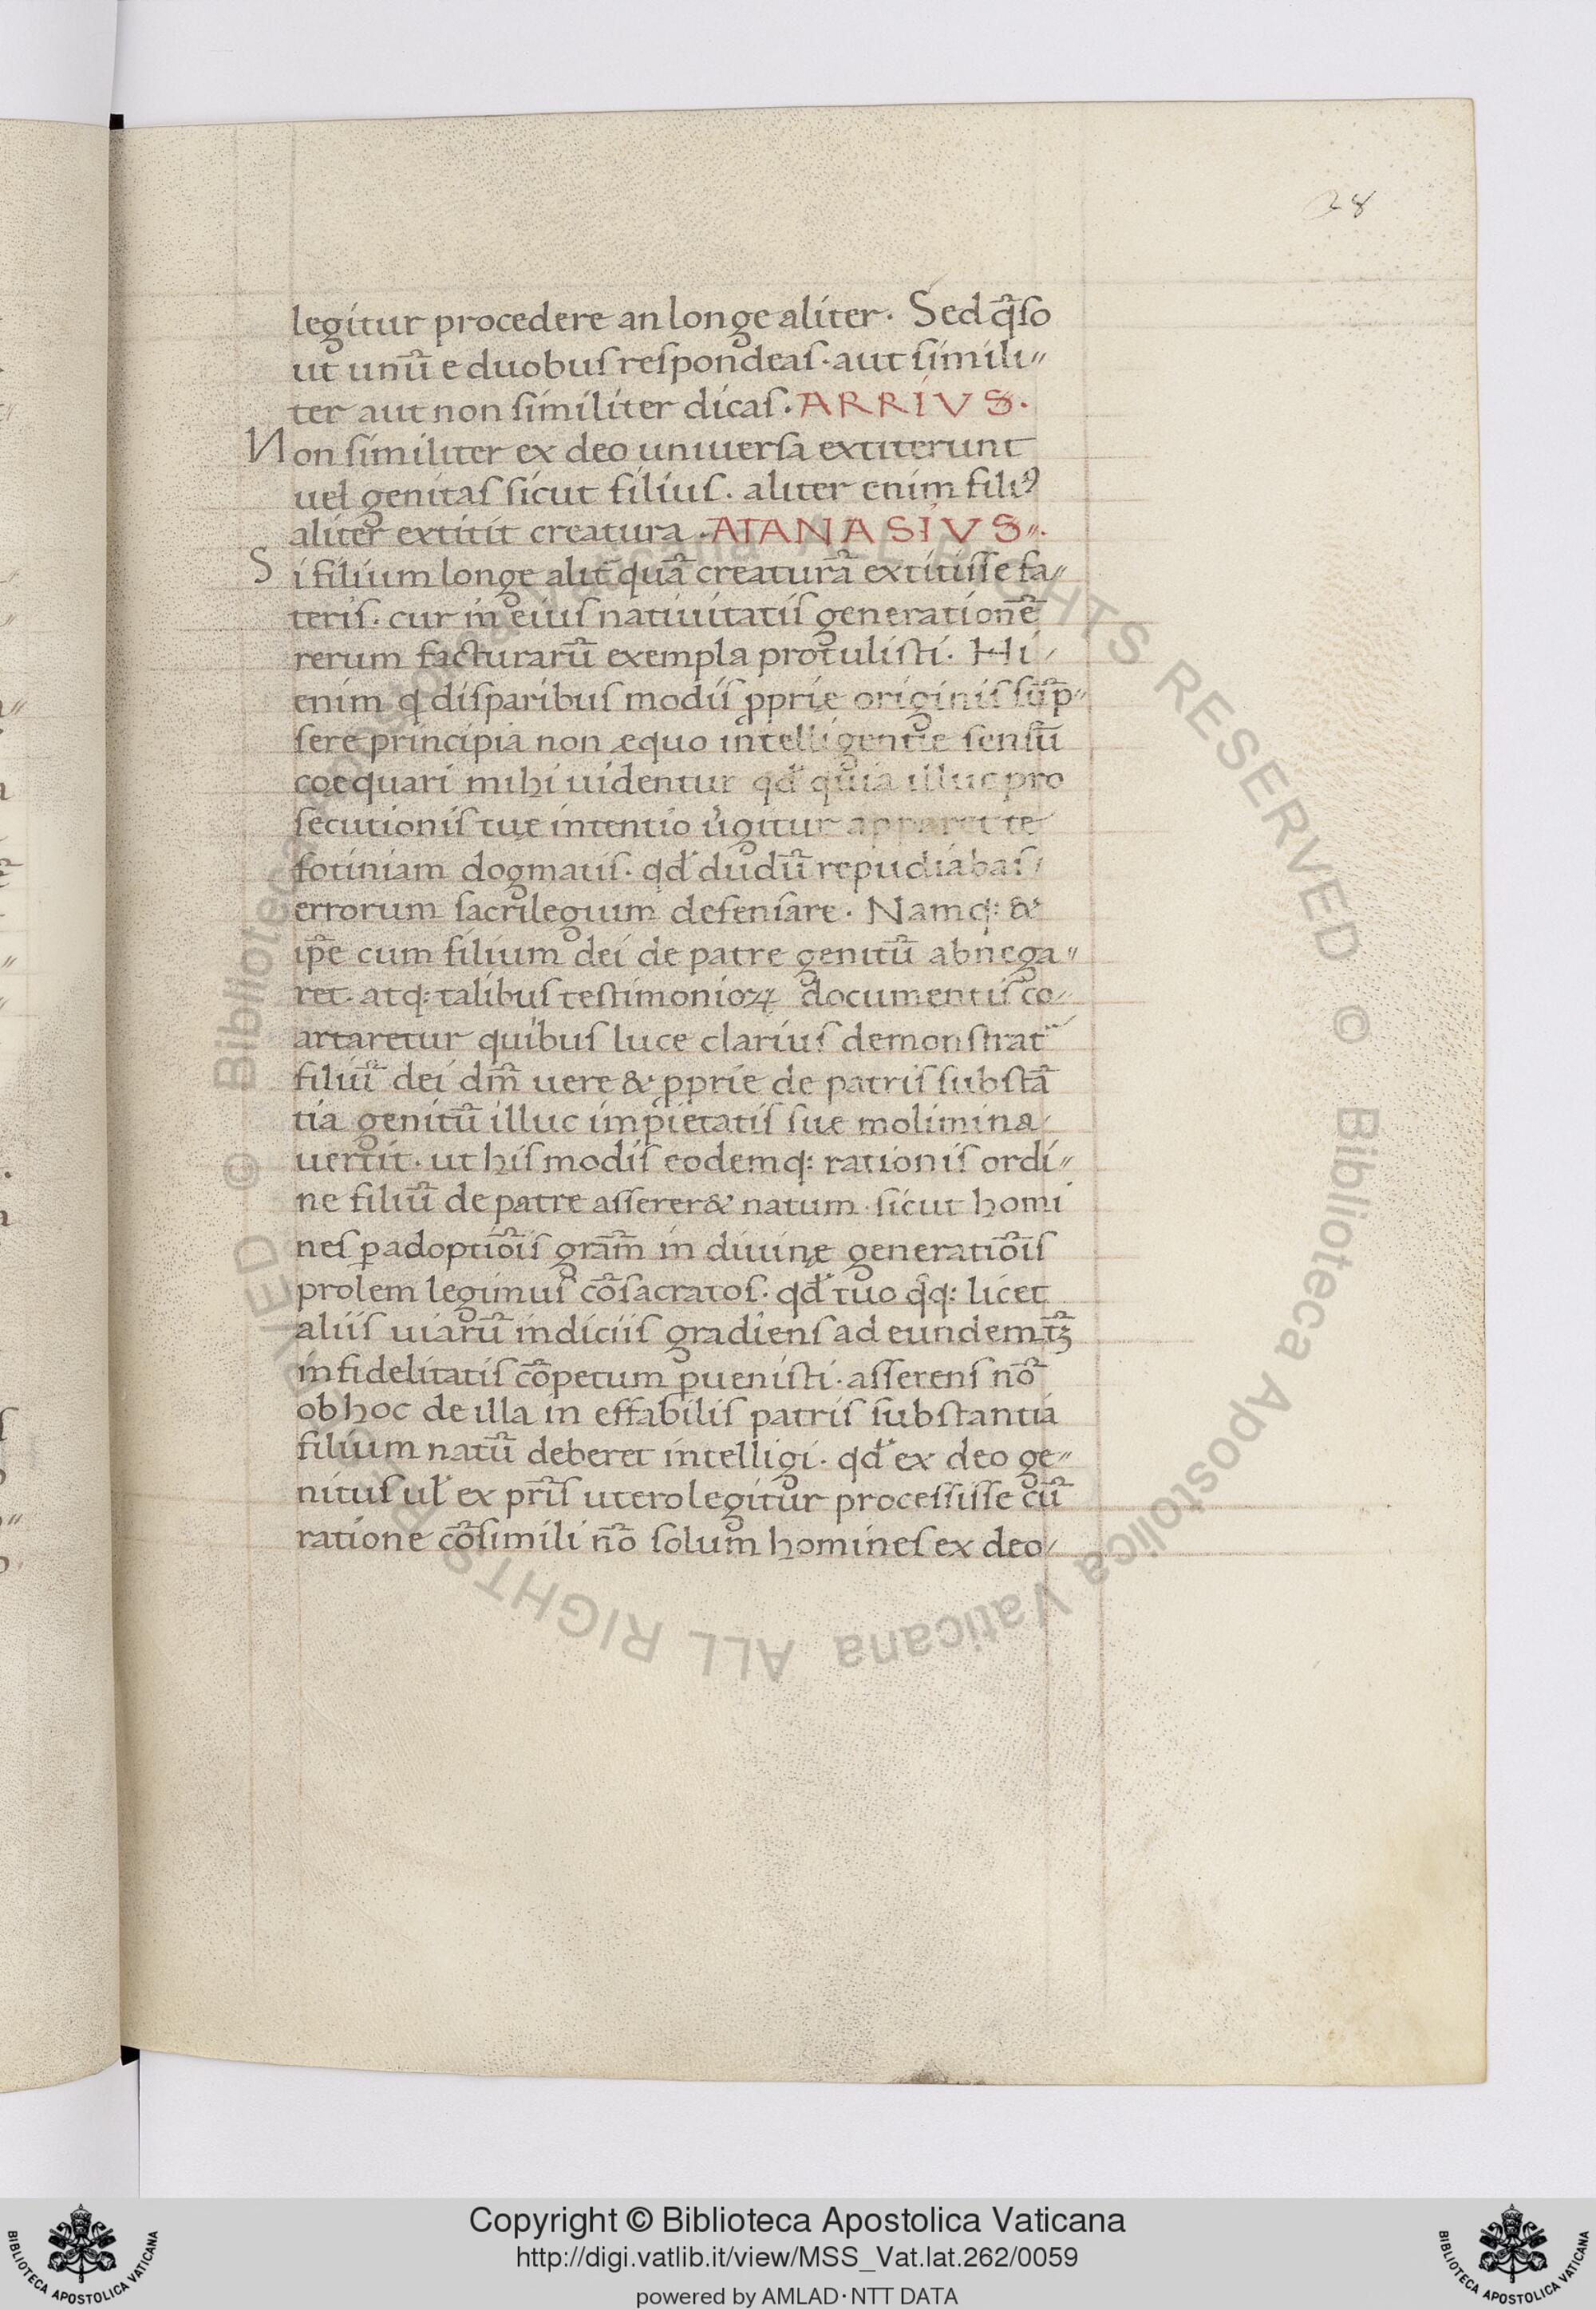 28
legitur procedere an longe aliter. Sed q̃so
ut unũ e duobus respondeas. aut simili〃
ter aut non similiter dicas. ARRIVS.
Non similiter ex deo uniuersa extiterunt
uel genitas sicut filius. aliter enim filiꝰ
aliter extitit creatura. ATANASIVS〃.
Si filium longe alit̃ quã creaturã extitisse fa〃
teris. cur in eius natiuitatis generationẽ
rerum facturarũ exempla protulisti. Hi
enim q disparibus modis ꝓprię originis sũp〃
sere principia non ęquo intelligentię sensũ
coęquari mihi uidentur qd̃ quia illuc pro
secutionis tuę intentio ũgitur apparet te
fotiniam dogmatis. qd̃ dudũ repudiabas
errorum sacrilegium defensare. Namq: &
ip̃e cum filium dei de patre genitũ abnega〃
ret. atq: talibus testimonioꝝ documentis co
artaretur quibus luce clarius demonstrat᷑
filiũ dei dm̃ uere & ꝓprie de patris substã
tia genitũ illuc impietatis sue molimina
uertit. ut his modis eodemq: rationis ordi〃
ne filiũ de patre asserer& natum. sicut homi
nes ꝑ adoptiõis grãm in diuinę generatiõis
prolem legimus cõsacratos. qd̃ tuo q̃q: licet
aliis uiarũ indiciis gradiens ad eundem t̃ꝫ
infidelitatis cõpetum ꝑuenisti. asserens nõ
ob hoc de illa in effabilis patris substantia
filium natũ deberet intelligi. qd̃ ex deo ge〃
nitus ul̃ ex pr̃is utero legitur processisse cũ
ratione cõsimili nõ solum homines ex deo
© Biblioteca Apostolica Vaticana ALL RIGHTS RESERVED © Biblioteca Apostolica Vaticana ALL RIGHTS RESERVED
Copyright © Biblioteca Apostolica Vaticana
http://digi.vatlib.it/view/MSS_Vat.lat.262/0059
powered by AMLAD·NTT DATA
BIBLIOTECA APOSTOLICA VATICANA
BIBLIOTECA APOSTOLICA VATICANA